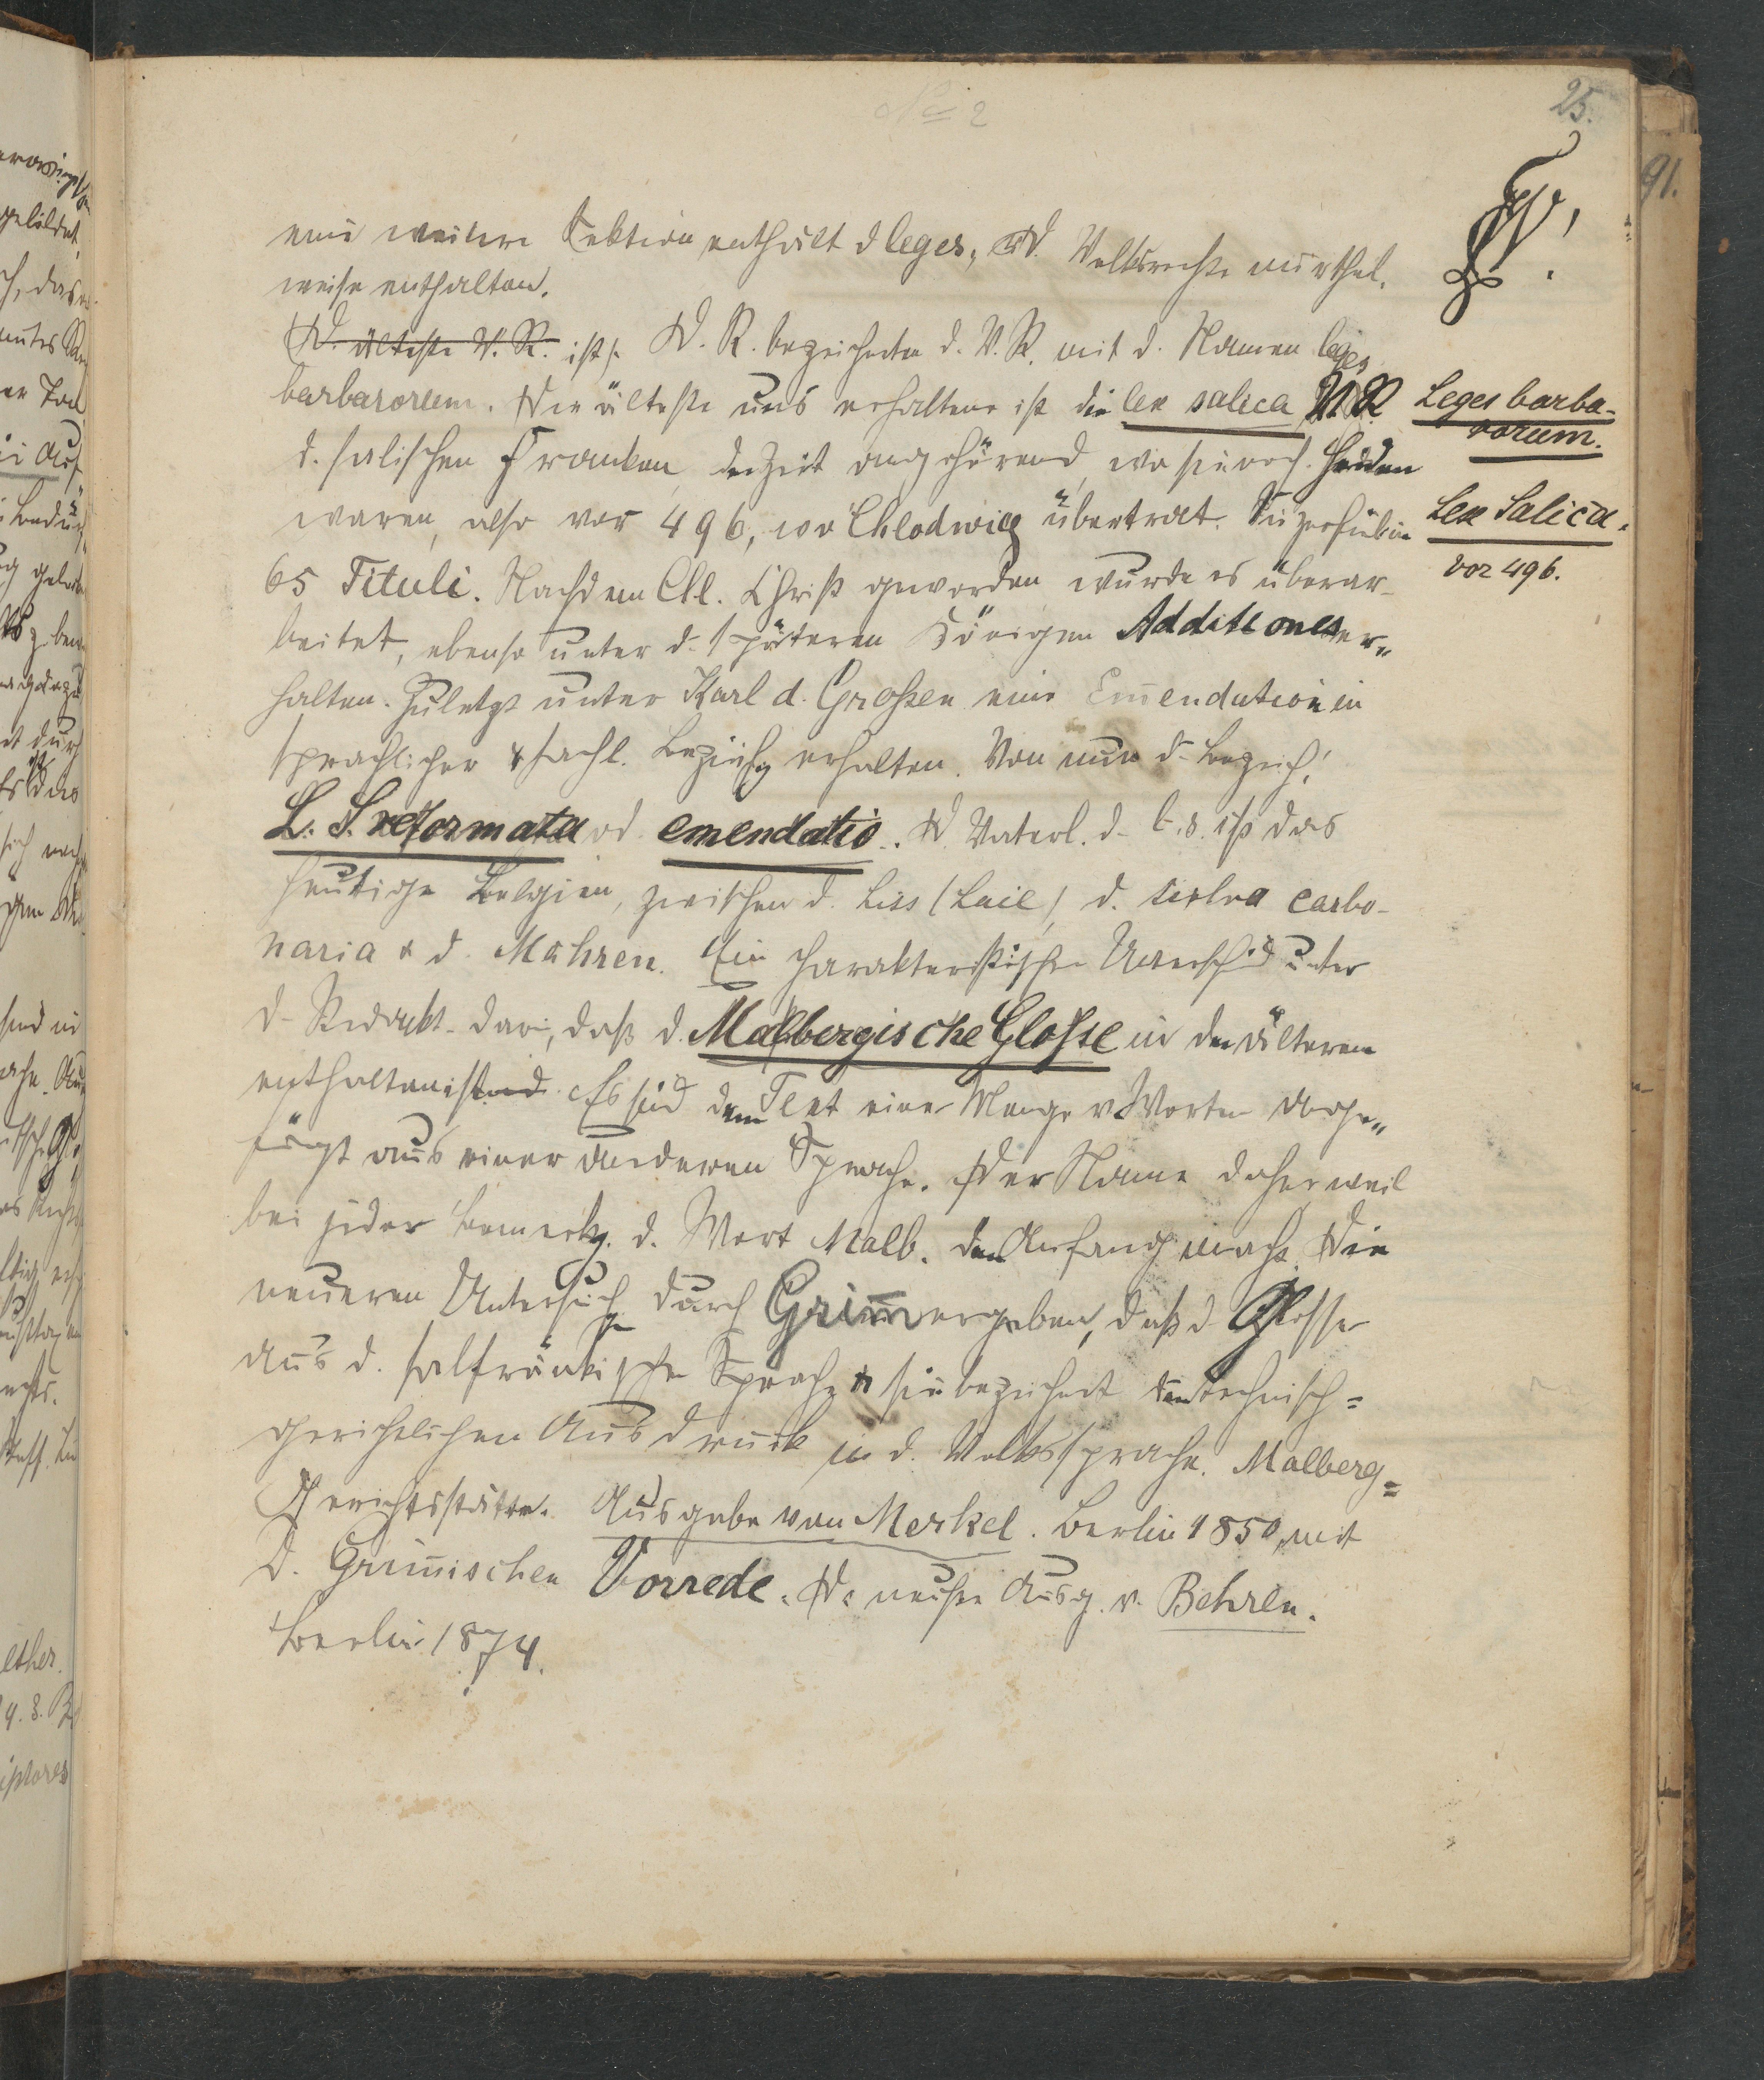 No 2
25.
91.
eine weitere Sektion enthält d leges, d. Volksrechte
weise enthalten.
D. älteste V. R. ist D. R. bezeichnete d. V. R. mit d. Namen leges
barbarorum. Die älteste uns erhaltene ist die lex salica V. R.
Leges barba-
rorum.
d. salischen Franken der Zeit angehörend, wo sie noch Heiden
waren, also vor 496, wo Chlodwig übertrat. Sie zerfiel in
Lex Salica.
vor 496.
65 Tituli. Nachdem Chl. Christ geworden wurde es überar-
beitet, ebenso unter d. späteren Königen Additiones er-
halten. Zuletzt unter Karl d. Großen eine Emendation in
sprachlicher & sachl. Beziehg erhalten. Von nun d. Bezeich.
L. S. reformata od. emendatio. D. Vaterl. d. l. s. ist das
heutige Belgien, zwischen d. Liss (Laie), d. silva carbo-
naria & d. Mahren. Ein charakteristischer Unterschied unter
d. Redakt. darin, daß d. Malbergische Glosse in den älteren
enthalten ist. Es sind dem Text eine Menge v. Worten beige-
fügt aus einer anderen Sprache. Der Name daher weil
bei jeder Bemerkg. d. Wort Malb. den Anfang macht. Die
neueren Untersuch durch Grim̄ ergeben, daß d. Glosse
aus d. salfränkischen Sprache & sie bezeichnet den technisch-
gerichtlichen Ausdruck in d. Volkssprache. Malberg=
Gerichtsstätte. Ausgabe von Merkel. Berlin 1850, mit
d. Grim̄ischen Vorrede. D. neuste Ausg. v. Behren.
Berlin 1874.